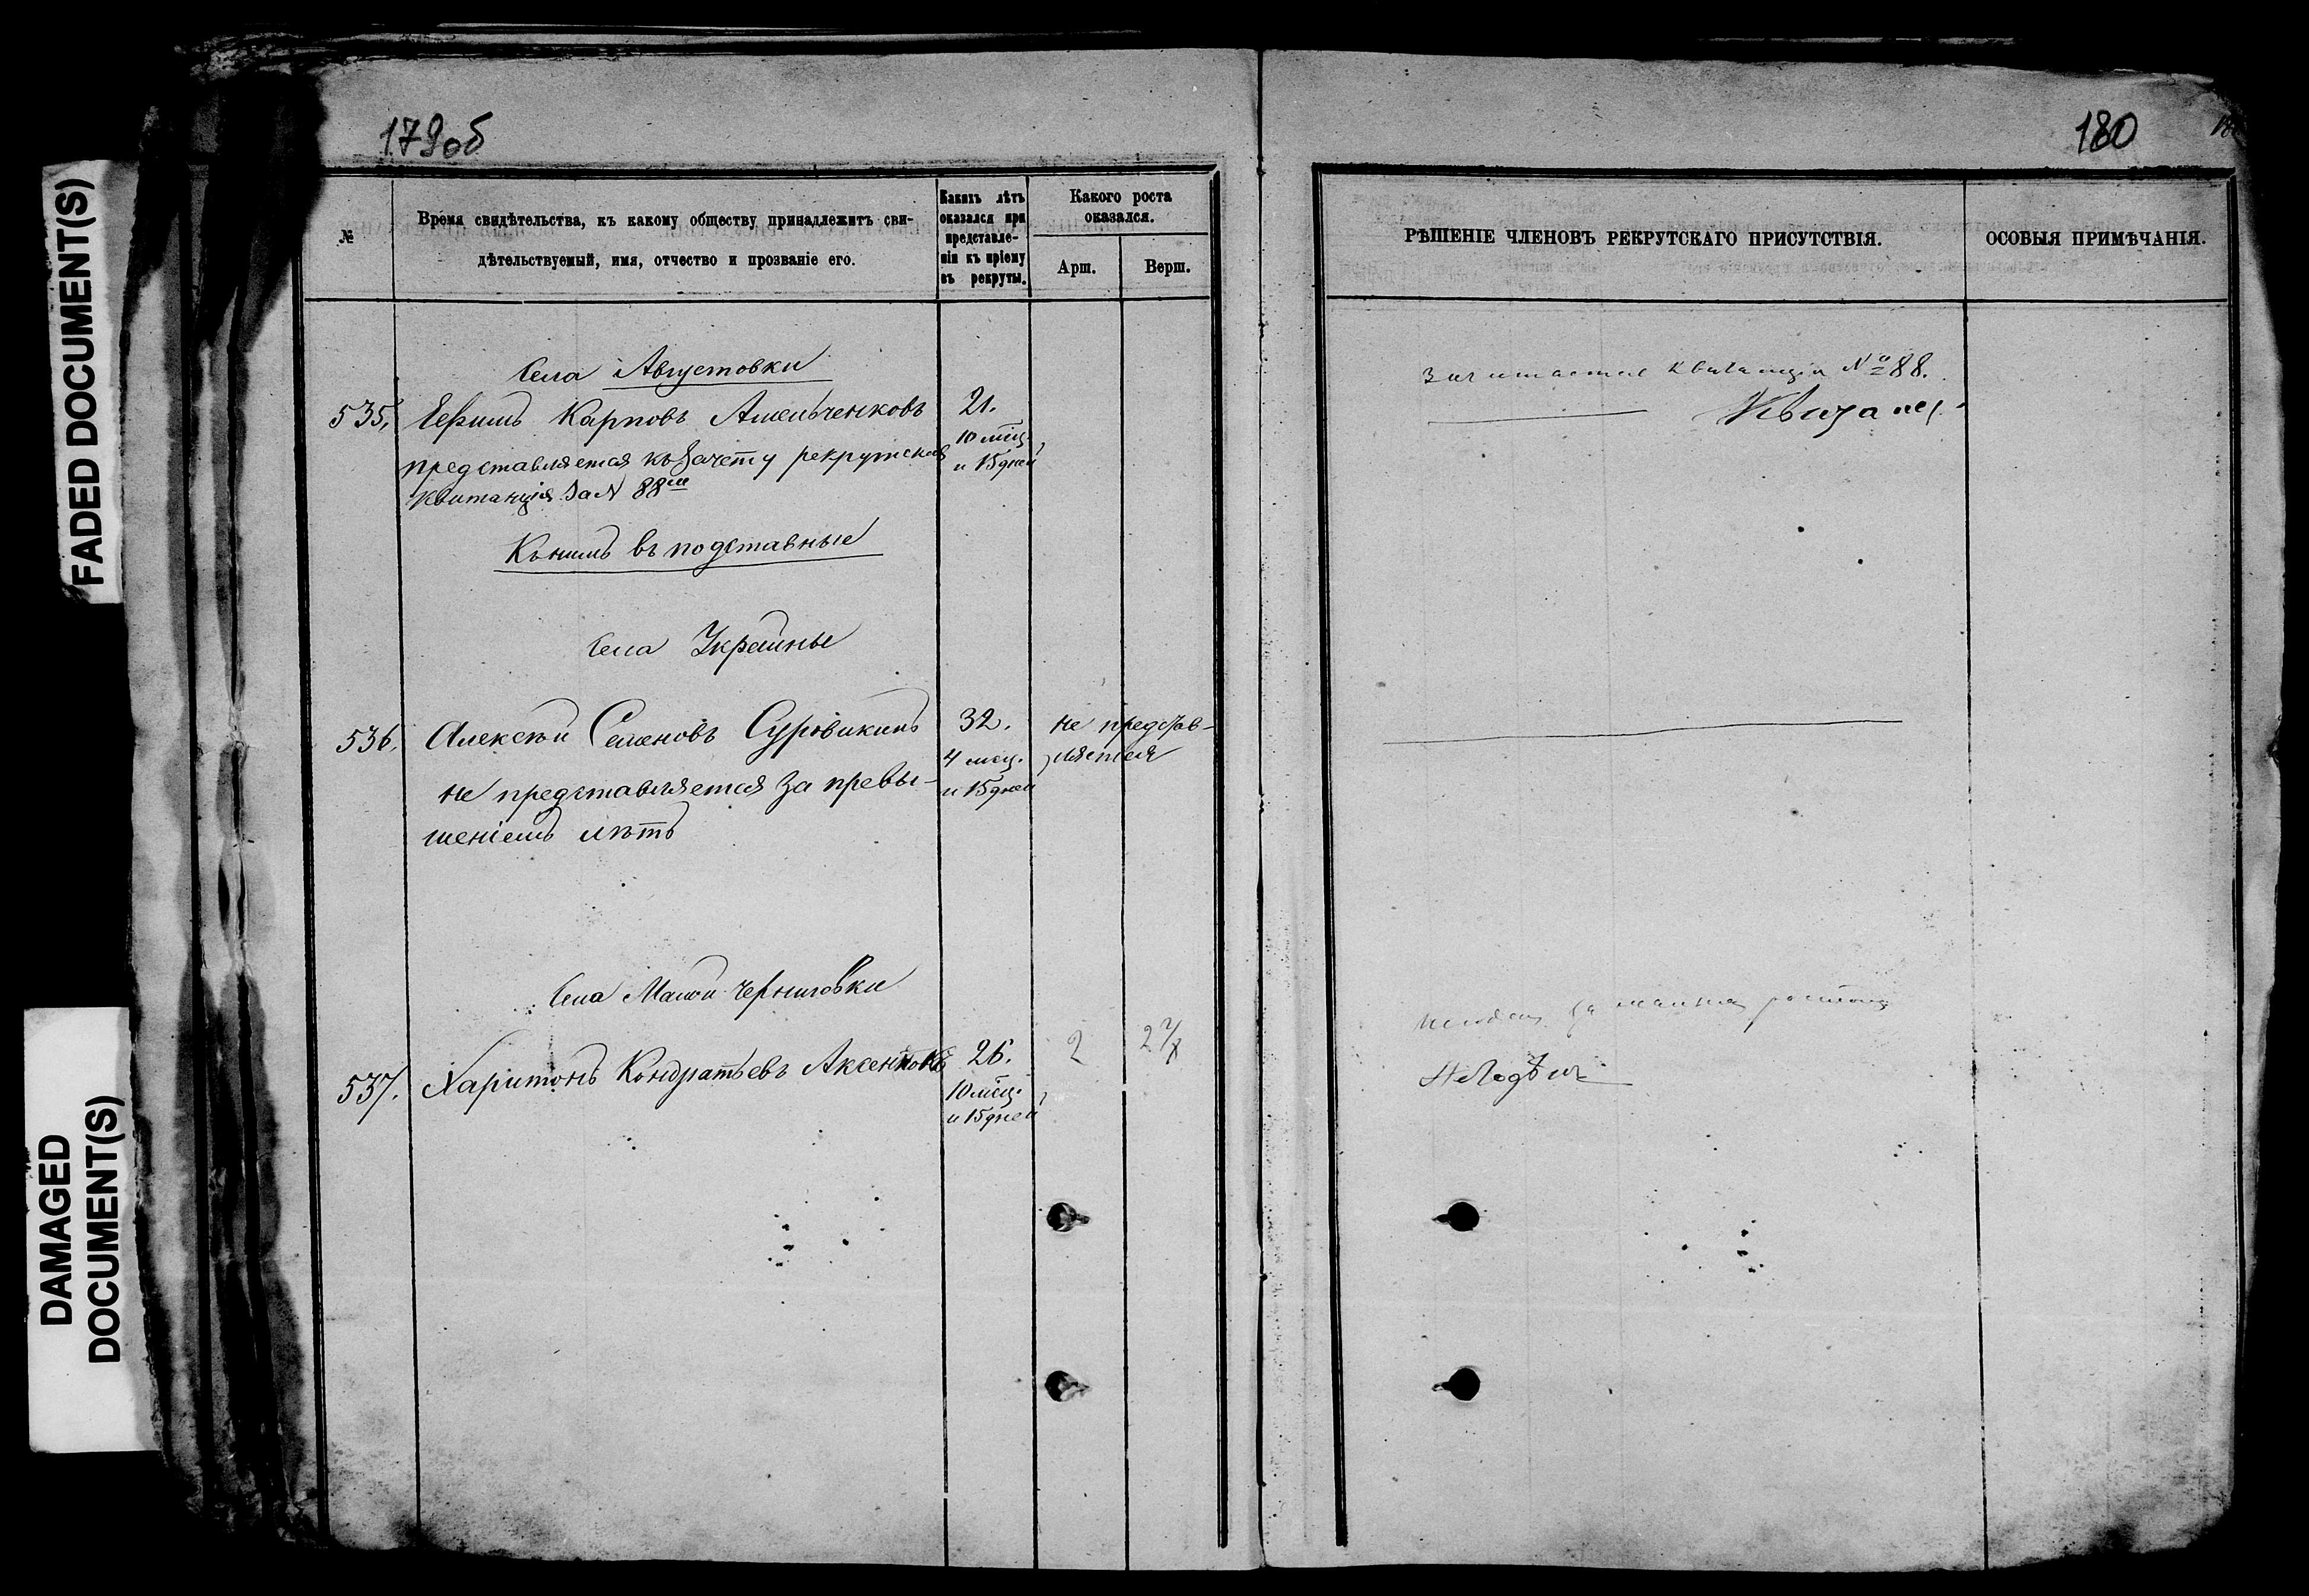 FADED DOCUMENT(S)
DAMAGED
DOCUMENT(S)
179об
№
Время свидѣтельства, къ какому обществу принадлежитъ сви-
дѣтельствуемый, имя, отчество и прозваніе его.
Какихъ лѣтъ
оказался при
представле-
ніи къ пріему
въ рекруты.
Какого роста
оказался.
Арш.
Верш.
Села Августовки
535. Ефимъ Карповъ Амельченковъ 21.
10 мѣц.
представляется къ зачету рекрутская и 15 дней
квитанція за № 88ю
Къ нимъ въ подставные
Села Украины
536. Алексѣй Семеновъ Суровикинъ 32. не представ-
4 мѣц. ляется
не представляется за превы- и 15 дней
шеніемъ лѣтъ
Села Малой Черниговки
537. Харитонъ Кондратьевъ Аксентовъ 26. 2 2 7/8
10 мѣц.
и 15 дней
180
РѢШЕНІЕ ЧЛЕНОВЪ РЕКРУТСКАГО ПРИСУТСТВІЯ.
ОСОБЫЯ ПРИМѢЧАНІЯ.
Зачитается квитанція № 88.
за малымъ ростомъ